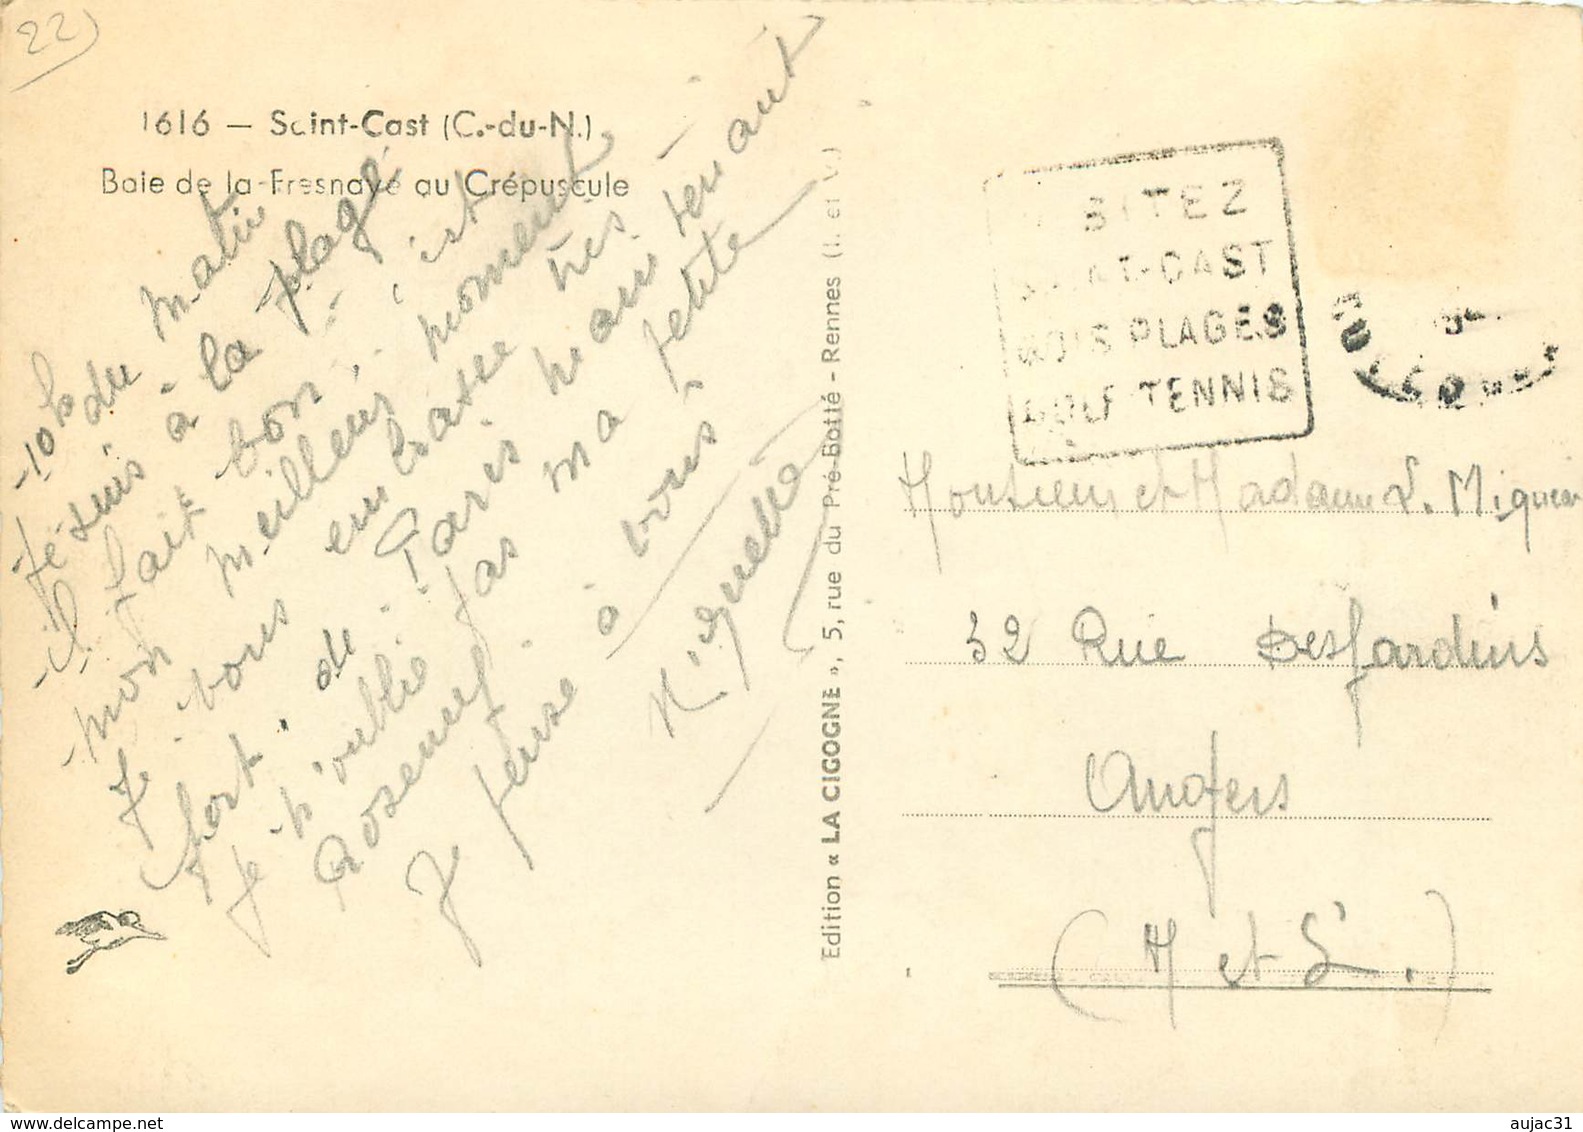 22)
1616 — Saint-Cast (C.-du-N.)
Baie de la Fresnaye au Crépuscule
-10h du matin
Je suis à la plage
il fait bon, c'est
mon meilleur moment
Je vous embrasse très
fort. de Paris maintenant
Je n'oublie pas ma petite
Je pense à vous
Edition « LA CIGOGNE », 5, rue du Pré-Botté - Rennes (I. et V.)
SITEZ
AT-CAST
PLAGES
TENNIS
Monsieur et Madame
32 Rue Desjardins
Angers
(M et L.)
aujac31